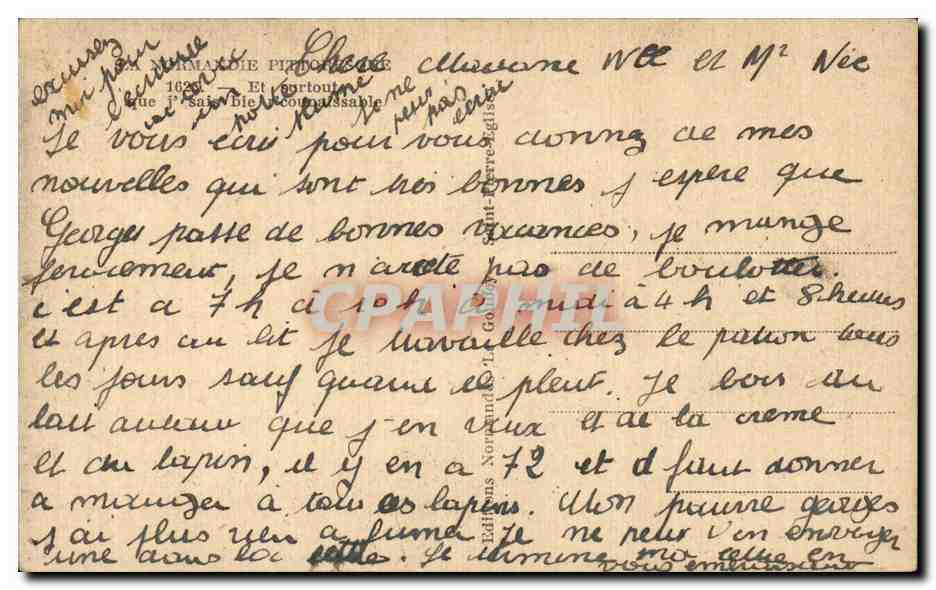 excusez
moi pour
l'écriture
LA NORMANDIE PITTORESQUE
162 — Et surtout
que j' sais bie connaissable
je ne
peux
pas
écrire
Chere Madame Nee et Mr Née
Je vous écris pour vous donnez de mes
nouvelles qui sont tres bonnes j espere que
Georges passe de bonnes vacances, je mange
forcement, je n'arrete pas de boulotter.
c'est a 7h à 10h à midi à 4h et 8 heures
et apres au lit je travaille chez le patron tous
les jours sauf quand il pleut. Je bois du
lait autant que j'en veux et de la creme
et du lapin, il y en a 72 et il faut donner
a manger à tous ces lapins. Mon pauvre georges
j'ai plus rien a fumer je ne peux t'en envoyer
une dans la lettre. Je termine ma lettre en
vous embrassant
Editions Normandes "Le Goubey" Saint-Pierre-Eglise
CPAPHIL